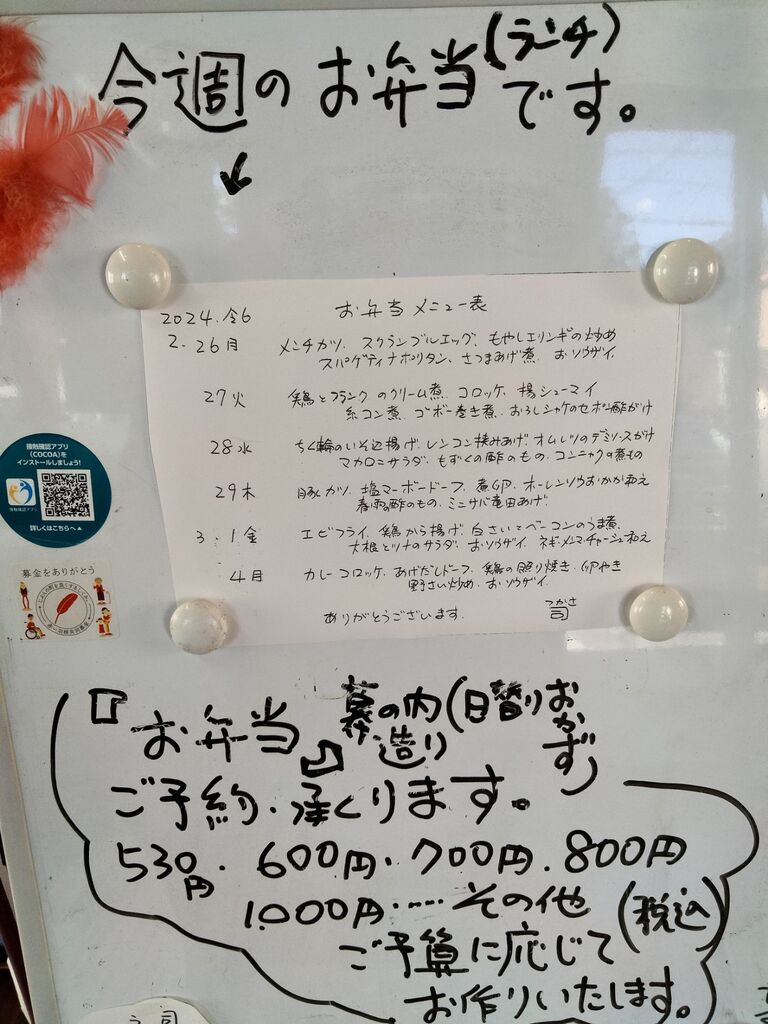 今週のお弁当(ランチ)です。
お弁当メニュー表
2024.令6
2.26月 メンチカツ、スクランブルエッグ、もやしエリンギの炒め
スパゲティナポリタン、さつまあげ煮、おソウザイ、
27火 鶏とフランクのクリーム煮、コロッケ、揚シューマイ
糸コン煮、ゴボー巻き煮、おろしシャケのせポン酢がけ
28水 ちく輪のいそ辺揚げ、レンコン挟みあげ、オムレツのデミソースがけ
マカロニサラダ、もずくの酢のもの、コンニャクの煮もの
29木 豚カツ、塩マーボードーフ、煮卵、ホーレンソウおかか和え
春雨酢のもの、ミニサバ竜田あげ、
3.1金 エビフライ、鶏から揚げ、白さいとベーコンのうま煮、
大根とツナのサラダ、おソウザイ、ネギ・メンマ・チャーシュ和え
4月 カレーコロッケ、あげだしドーフ、鶏の照り焼き、卵やき
野さい炒め、おソウザイ、
ありがとうございます。
つかさ
司
接触確認アプリ
(COCOA)を
インストールしましょう!
接触確認アプリ
詳しくはこちらへ▲
募金をありがとう
『お弁当』幕の内(日替りおかず)
造り
ご予約・承くります。
530円・600円・700円・800円
1.000円・‥‥その他(税込)
ご予算に応じて
お作りいたします。